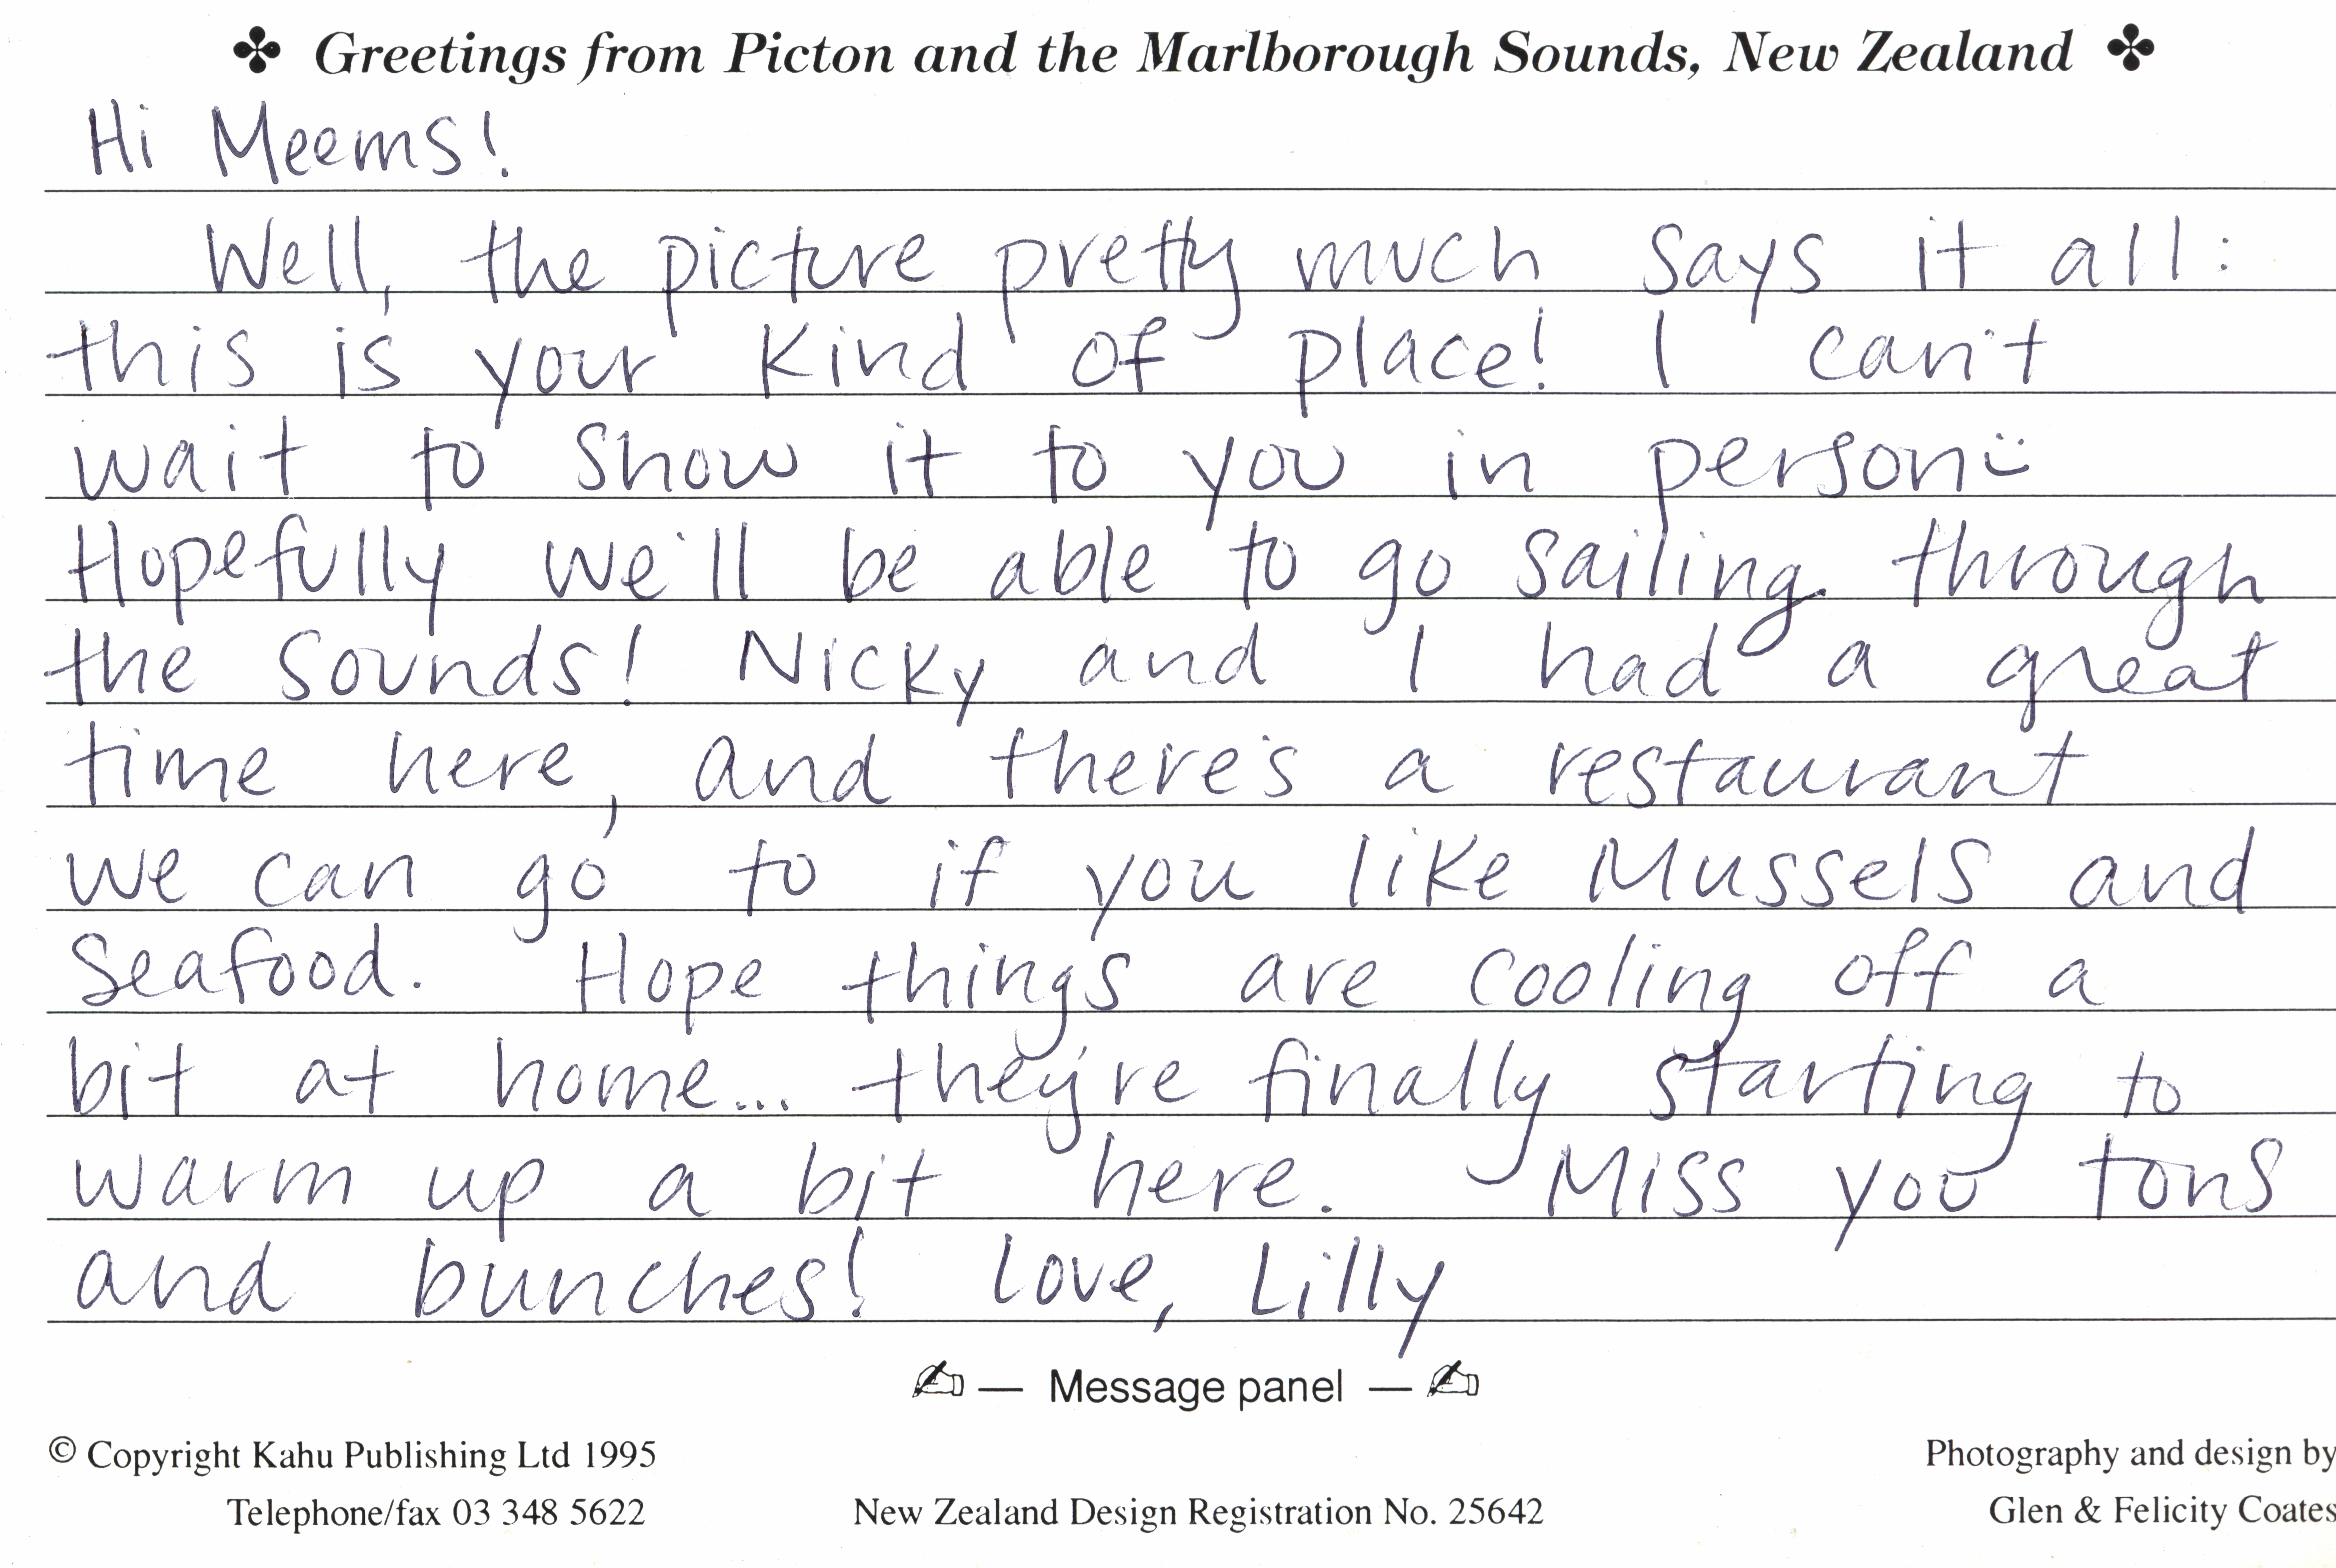 ✤ Greetings from Picton and the Marlborough Sounds, New Zealand ✤
Hi Meems!
Well, the picture pretty much says it all:
this is your kind of place! I can't
wait to show it to you in person :)
Hopefully we'll be able to go sailing through
the Sounds! Nicky and I had a great
time here, and there's a restaurant
we can go to if you like Mussels and
Seafood. Hope things are cooling off a
bit at home... they're finally starting to
warm up a bit here. Miss you tons
and bunches! Love, Lilly
✍ — Message panel — ✍
© Copyright Kahu Publishing Ltd 1995
Photography and design by
Telephone/fax 03 348 5622
New Zealand Design Registration No. 25642
Glen & Felicity Coates